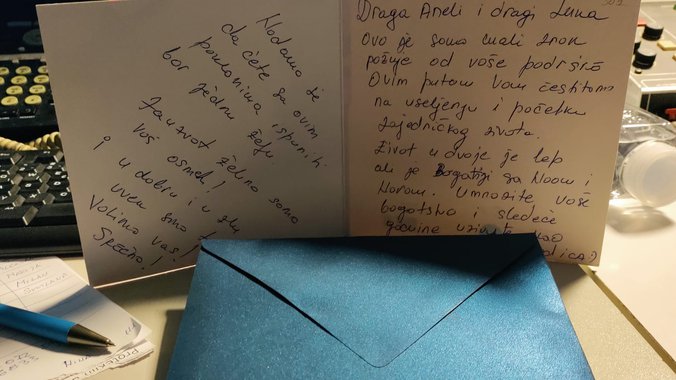 Draga Aneli i dragi Luka
Ovo je samo mali znak
pažnje od vaše podrške
Ovim putem Vam čestitamo
na useljenju i početku
zajedničkog života.
Život u dvoje je lep
ali je bogatiji sa Noom i
Norom. Umnožite vaše
bogatstvo i sledeće
godine
Nadamo se
da ćete sa ovim
poklonima ispuniti
bar jednu želju
Zauzvrat želimo samo
vaš osmeh!
i u dobru i u zlu
uvek smo
Volimo vas!
Srećno!
MILAN